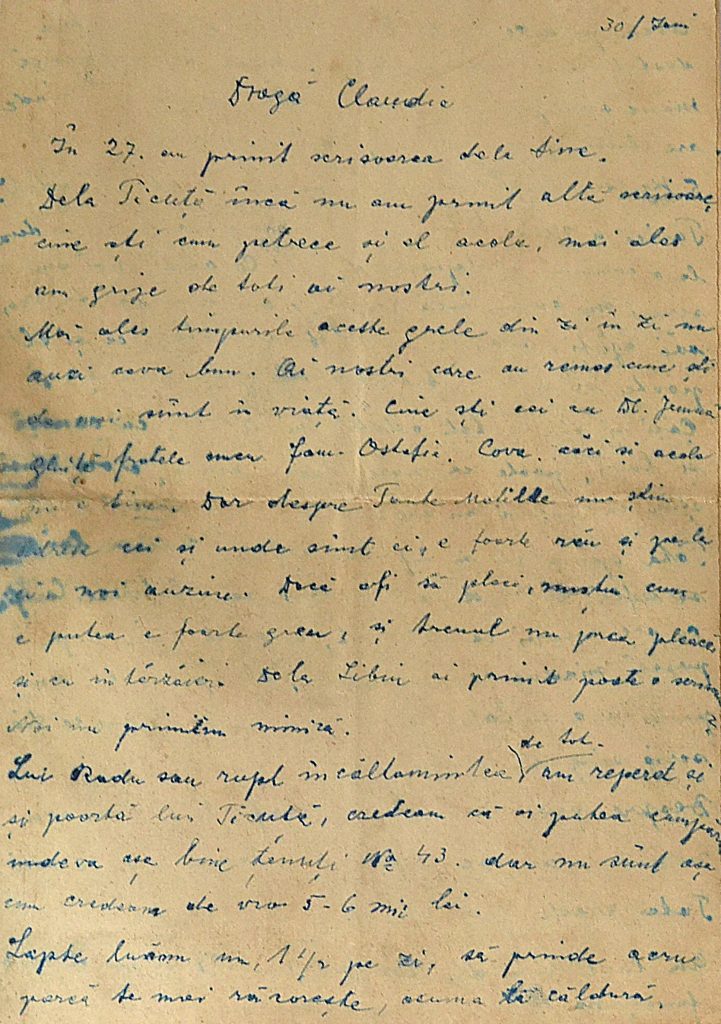 30/Iuni
Dragă Claudia
În 27. am primit scrisoarea dela tine.
Dela Ticuță încă nu am primit altă scrisoare,
cine ști cum petrece și el acolo, mai ales
am grije de toți ai nostri.
Mai ales timpurile aceste grele din zi în zi nu
auzi ceva bun. Ai nostri care au remas cine ști
de mai sûnt in viață. Cine ști cei cu Dl.
fratele meu fam. Ostafie. Cova. căci și acolo
nu e bine. Dar despre Tante Matilde nu știm
cei și unde sînt ei, e foarte rău și pe la
ei noi auzim. Dacă să pleci, cum
e putea e foarte greu, și trenul nu prea pleacă
și cu întârzâieri. Dela Sibiu ai primit poate o
Noi nu primim nimică.
de tot.
Lui Radu sau rupt încăltamintea am reperd și
și poartă lui Ticuță, credeam că oi putea
undeva așa bine ținuți No 43. dar nu sûnt așa
cum credeam de vro 5-6 mii lei.
Lapte luăm un, 1 1/2 pe zi, să prinde acru
parcă te mai răcorește, acuma la căldură,